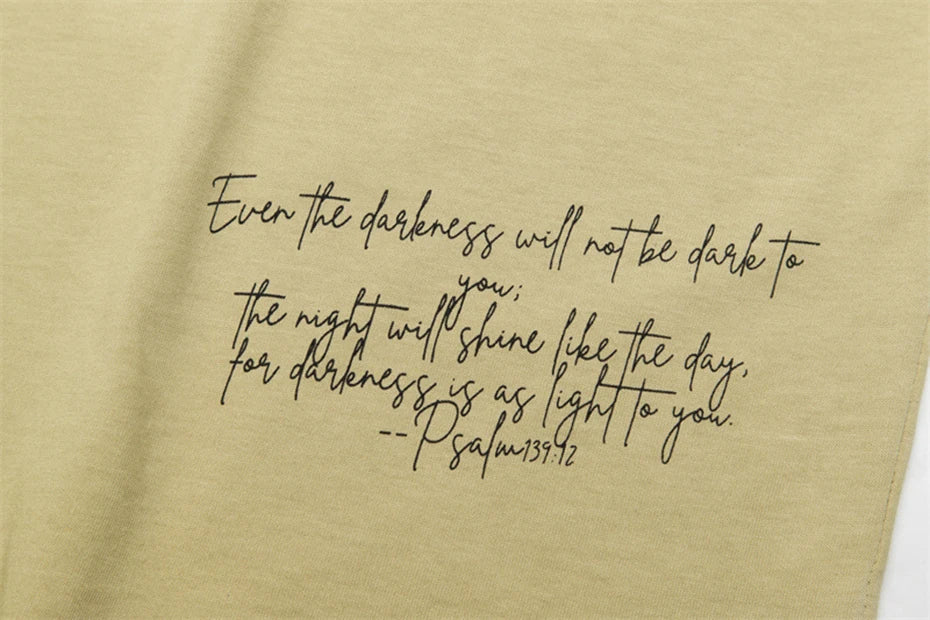 Even the darkness will not be dark to
you;
the night will shine like the day,
for darkness is as light to you.
--Psalm139:12